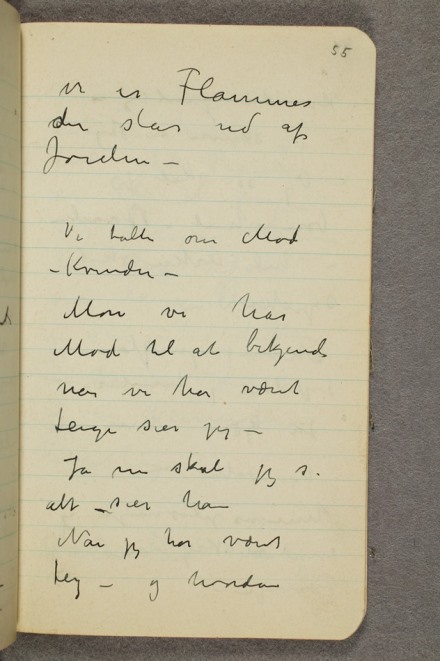 55
vi er Flammes
der slar ud af
Jorden –
Vi talte om Mod
– Kvinder –
Mon vi har
Mod til at bekjende
nar vi har været
feige sier jeg –
Ja nu skal jeg s.
alt – sier han
Nar jeg har været
feig – og hvordan